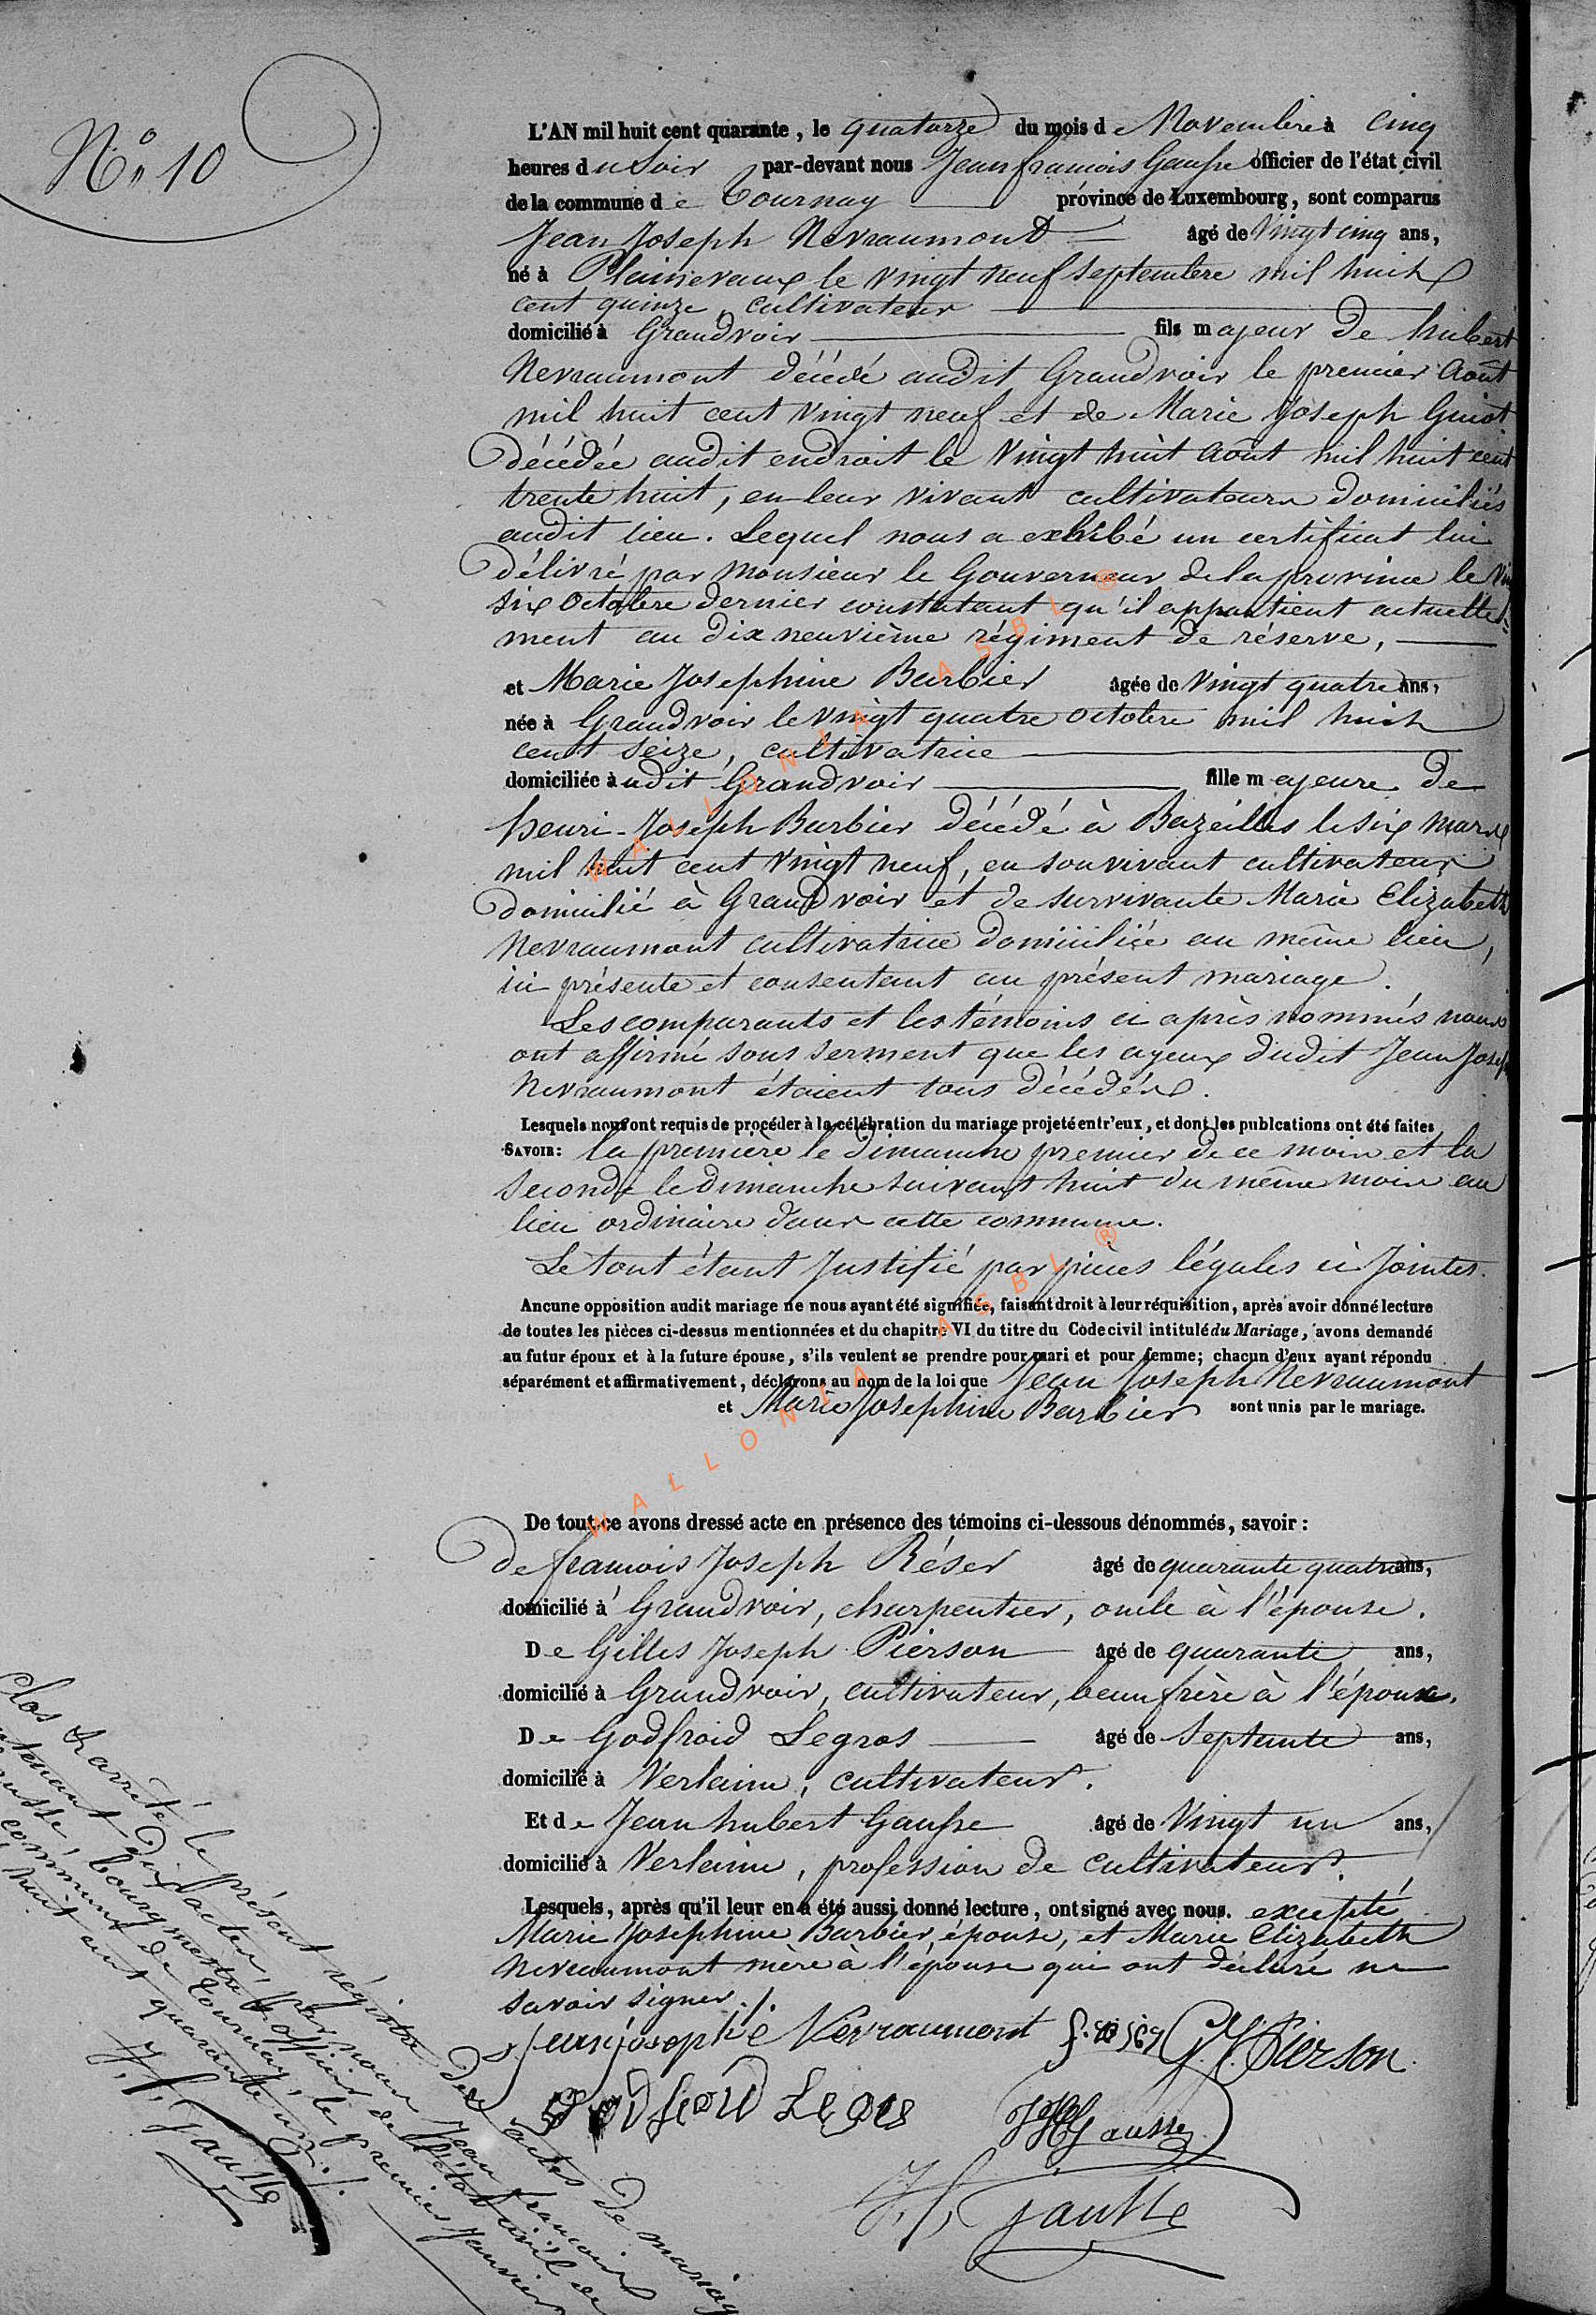 N° 10
L'AN mil huit cent quarante, le quatorze du mois de Novembre à cinq
heures du Soir par-devant nous Jean françois Gausse officier de l'état civil
de la commune de Tournay province de Luxembourg, sont comparus
Jean Joseph Nevraumont âgé de Vingt cinq ans,
né à Plainevaux le vingt neuf septembre mil huit
cent quinze, cultivateur
domicilié à Grandvoir fils majeur de hubert
Nevraumont décédé audit Grandvoir le premier Août
mil huit cent vingt neuf et de Marie Joseph Guiot
décédée audit endroit le Vingt huit Août mil huit cent
trente huit, en leur vivant cultivateurs domiciliés
audit lieu. Lequel nous a exhibé un certificat lui
délivré par Monsieur le Gouverneur de la province le
six Octobre dernier constatant qu'il appartient actuelle-
ment au dix neuvième régiment de réserve,
et Marie Josephine Barbier âgée de Vingt quatre ans,
née à Grandvoir le vingt quatre octobre mil huit
cent seize, cultivatrice
domiciliée audit Grandvoir fille majeure de
henri-Joseph Barbier décédé à Bazeilles le six mars
mil huit cent vingt neuf, en son vivant cultivateur
domicilié à Grandvoir et de survivante Marie Elizabeth
Nevraumont cultivatrice domiciliée au même lieu,
ici présente et consentant au présent mariage.
Les comparants et les témoins ci après nommés nous
ont affirmé sous serment que les ayeux dudit Jean Joseph
Nevraumont étaient tous décédés.
Lesquels nous ont requis de procéder à la célébration du mariage projeté entr'eux, et dont les publcations ont été faites
SAVOIR: la première le dimanche premier de ce mois et la
seconde le dimanche suivant huit du même mois au
lieu ordinaire dans cette commune.
Le tout étant Justifié par pièces légales ci Jointes.
Ancune opposition audit mariage ne nous ayant été signifiée, faisant droit à leur réquisition, après avoir donné lecture
de toutes les pièces ci-dessus mentionnées et du chapitre VI du titre du Code civil intitulé du Mariage, avons demandé
au futur époux et à la future épouse, s'ils veulent se prendre pour mari et pour femme; chacun d'eux ayant répondu
séparément et affirmativement, déclarons au nom de la loi que Jean Joseph Nevraumont
et Marie Josephine Barbier sont unis par le mariage.
De tout ce avons dressé acte en présence des témoins ci-dessous dénommés, savoir:
De francois Joseph Réser âgé de quarante quatre ans,
domicilié à Grandvoir, charpentier, oncle à l'épouse.
De Gilles Joseph Pierson âgé de quarante ans,
domicilié à Grandvoir, cultivateur, beau frère à l'époux.
De Godfroid Legros âgé de Septante ans,
domicilié à Verlaine, cultivateur.
Et de Jean hubert Gausse âgé de Vingt un ans,
domicilié à Verlaine, profession de cultivateur.
Lesquels, après qu'il leur en a été aussi donné lecture, ont signé avec nous. excepté
Marie Josephine Barbier, épouse, et Marie Elizabeth
Nevraumont mère à l'épouse qui ont déclaré ne
savoir signer./.
jean joseph Nevraumont
G. J. Pierson
Godfroid Legros
JH Gausse
J. f. Gausse
Clos & arrêté le présent régistre des actes de mariag
contenant dix actes, par nous Jean francois
Gausse, bourgmestre officier de l'état civil de
la commune de Tournay, le premier Janvier
mil huit cent quarante un./.
J. f. Gausse
WALLONIA ASBL ®
WALLONIA ASBL ®